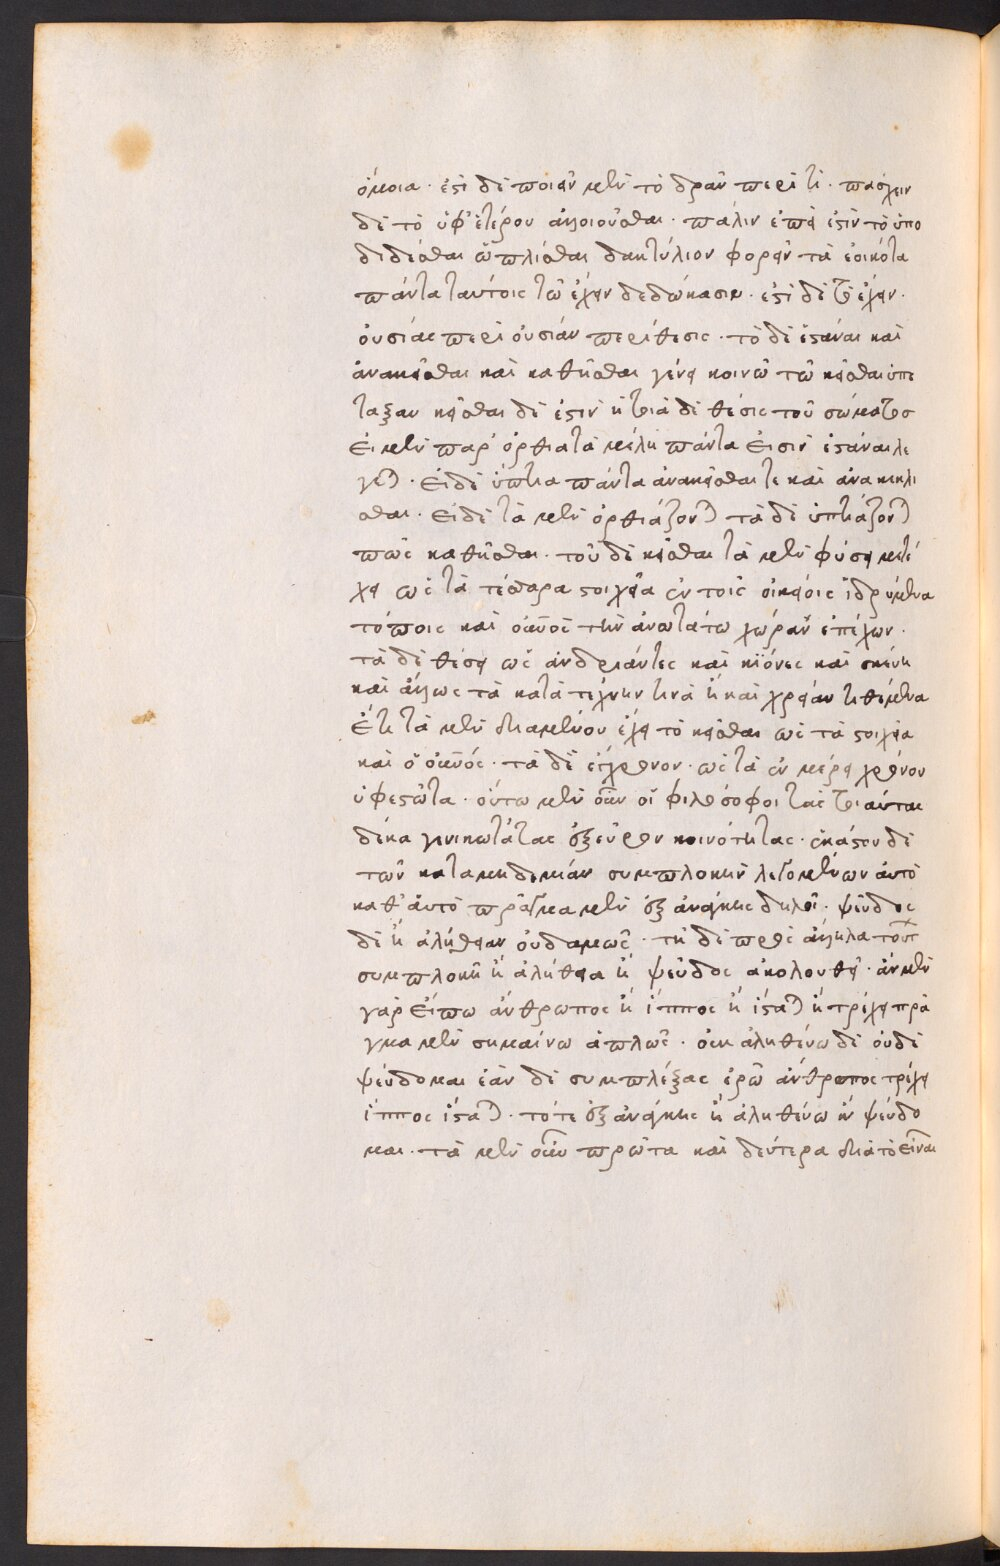 ὅμοια · ἐστὶ δὲ ποιεῖν μὲν τὸ δρᾶν περί τι · πάσχειν
δὲ τὸ ὑφ' ἑτέρου ἀλλοιοῦσθαι · πάλιν ἐπεὶ ἐστὶν τὸ ὑπο
δεδέσθαι ὡπλίσθαι δακτύλιον φορεῖν τὰ ἐοικότα
πάντα ταυτοις τῶ ἔχειν δεδώκασιν · ἐστὶ δὲ τὸ ἔχειν ·
οὐσίας περὶ οὐσίαν περίθεσις · τὸ δὲ ἑστάναι καὶ
ἀνακεῖσθαι καὶ καθῆσθαι γένει κοινῶ τῶ κεῖσθαι ὑπέ
ταξαν κεῖσθαι δέ ἐστιν ἡ τοιάδε θέσις τοῦ σώματος
εἰ μὲν παρ' ὄρθια τὰ μέλη πάντα εἰσὶν ἑστάναι λέ
γεται · εἰ δὲ ὕπτια πάντα ἀνακεῖσθαί τε καὶ ἀνακεκλί
σθαι · εἰ δὲ τὰ μὲν ὀρθιάζονται τὰ δὲ ὑπτιάζονται
πως καθῆσθαι · τοῦ δὲ κεῖσθαι τὰ μὲν φύσει μετέ
χει ὡς τὰ τέσσαρα στοιχεῖα ἐν τοῖς οἰκείοις ἱδρυμένα
τόποις καὶ οὐρανὸς τὴν ἀνωτάτω χώραν ἐπέχων ·
τὰ δὲ θέσει ὡς ἀνδριάντες καὶ κίονες καὶ σκεύη
καὶ ἄλλως τὰ κατὰ τέχνην τινὰ ἢ καὶ χρείαν τιθέμενα
Ἔτι τὰ μὲν διαμένον ἔχει τὸ κεῖσθαι ὡς τὰ στοιχεῖα
καὶ ὁ οὐρανός · τὰ δὲ ἔγχρονον · ὡς τὰ ἐν μέρει χρόνου
ὑφεστῶτα · οὕτω μὲν οὖν οἱ φιλόσοφοι τὰς τοιαύτας
δέκα γενικωτάτας ἐξεῦρον κοινότητας · ἕκαστον δὲ
τῶν κατὰ μηδεμίαν συμπλοκὴν λεγομένων αὐτὸ
καθ' αὑτὸ πρᾶγμα μὲν ἐξ ἀνάγκης δηλοῖ · ψεῦδος
δὲ ἢ ἀλήθειαν οὐδαμῶς · τῆ δὲ πρὸς ἄλληλα τούτων
συμπλοκῆ ἢ ἀλήθεια ἢ ψεῦδος ἀκολουθεῖ · ἂν μὲν
γὰρ εἴπω ἄνθρωπος ἢ ἵππος ἢ ἵσταται ἢ τρέχει πρᾶ
γμα μὲν σημαίνω ἁπλῶς · οὐκ ἀληθεύω δὲ οὐδὲ
ψεύδομαι ἐὰν δὲ συμπλέξας ἐρῶ ἄνθρωπος τρέχει
ἵππος ἵσταται · τότε ἐξ ἀνάγκης ἢ ἀληθεύω ἢ ψεύδο
μαι · τὰ μὲν οὖν πρῶτα καὶ δεύτερα διὰ τὸ εἶναι